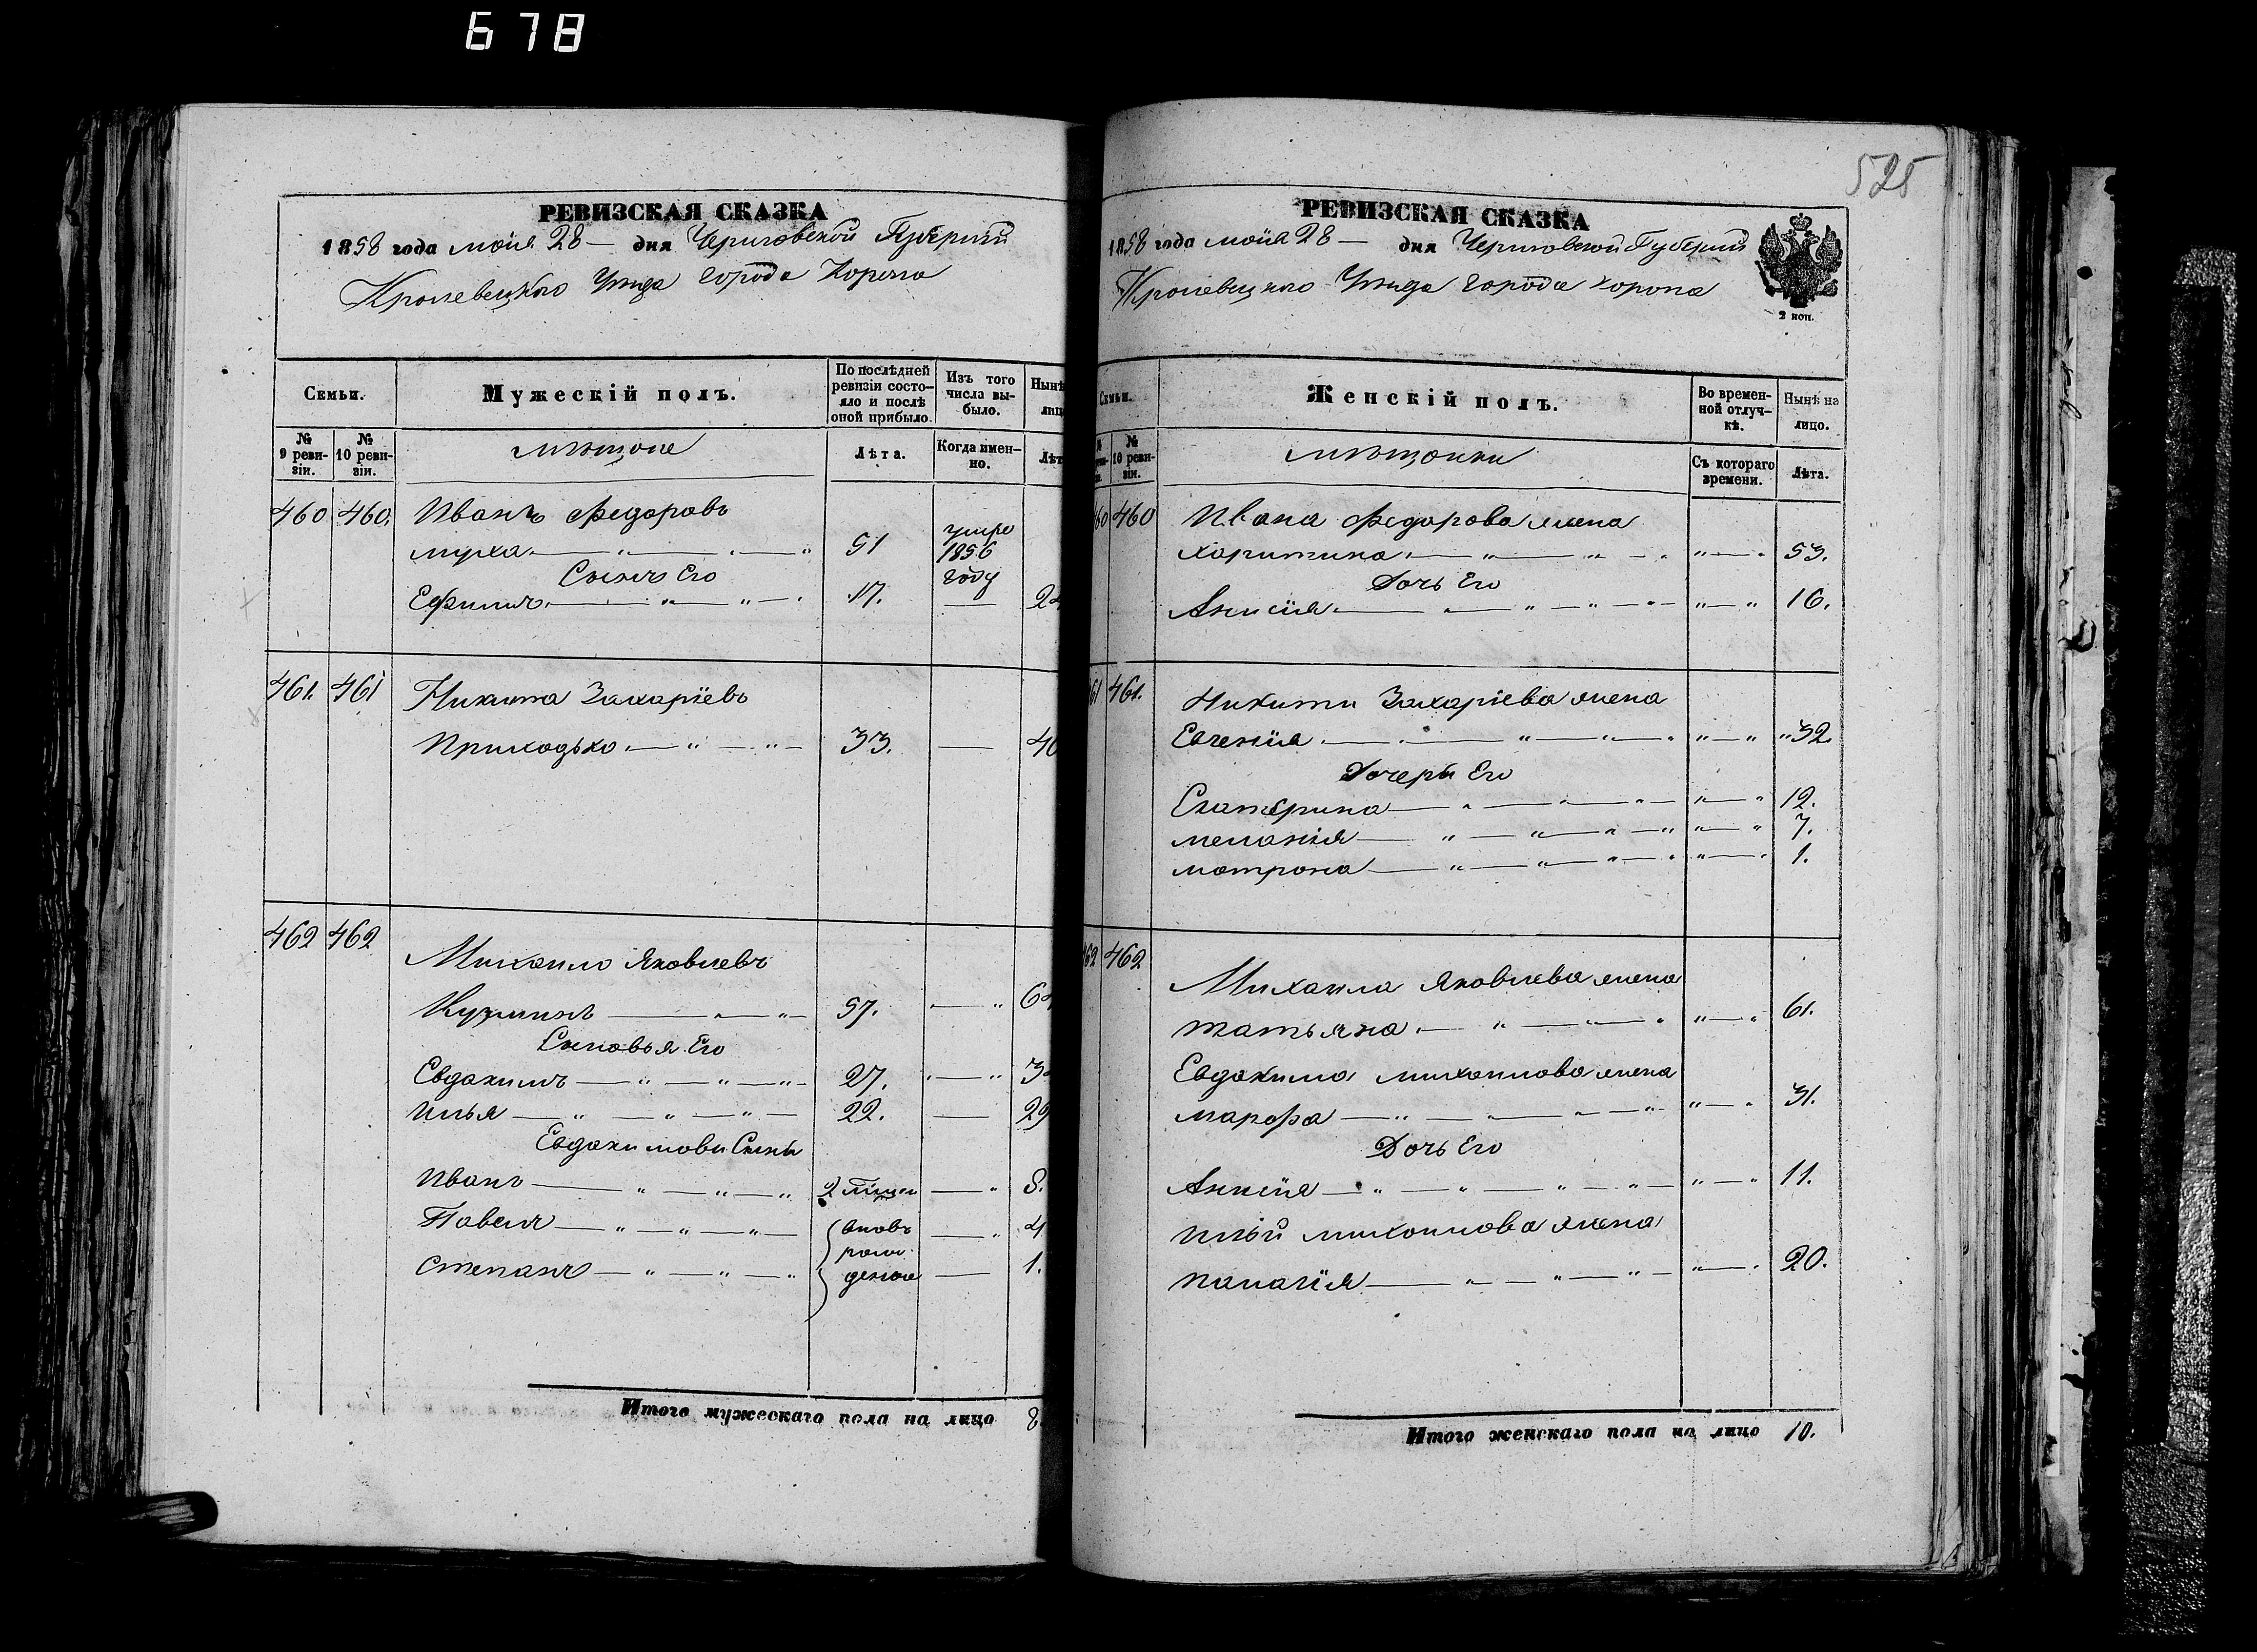 678
525
РЕВИЗСКАЯ СКАЗКА
1858 года мая 28 — дня Черниговской Губернии
Кролевецкого Уезда города Коропа
Семьи.
Мужескій полъ.
По послѣдней ревизіи состо-яло и послѣ оной прибыло.
Изъ того числа вы-было.
Нынѣ
лиц
№ 9 реви-зіи.
№ 10 реви-зіи.
мѣщане
Лѣта.
Когда имен-но.
Лѣт
460 460. Иванъ Федоровъ
муха 51 умре 1856 году
Сынъ Его
Ефимъ 17. — 24
461. 461 Никита Захаріевъ
Приходько 33. — 40
462 462 Михаило Яковлевъ
Кузминъ 57. — 64
Сыновья Его
Евдокимъ 27. — 34
Илья 22. — 29
Евдокимови Сыны
Иванъ 2 — 8.
Павелъ вновь — 4
рож-
Степанъ денные — 1.
Итого мужескаго пола на лицо 8
РЕВИЗСКАЯ СКАЗКА
1858 года мая 28 — дня Черниговской Губернии
Кролевецкого Уезда города Коропа
2 коп.
Семьи.
Женскій полъ.
Во времен-ной отлуч-кѣ.
Нынѣ на лицо.
№ 10 реви-зіи.
мѣщанки
Съ котораго времени.
Лѣта.
60 460 Ивана Федорова жена
Харитина 53.
Дочь Его
Анисія 16.
61 461. Никити Захаріева жена
Евгенія 32.
Дочери Его
Екатерина 12.
меланія 7.
матрона 1.
62 462 Михаила Яковлева жена
татьяна 61.
Евдокима михаилова жена
марфа 31.
Дочь Его
Анисія 11.
Ильи михаилова жена
палагія 20.
Итого женскаго пола на лицо 10.